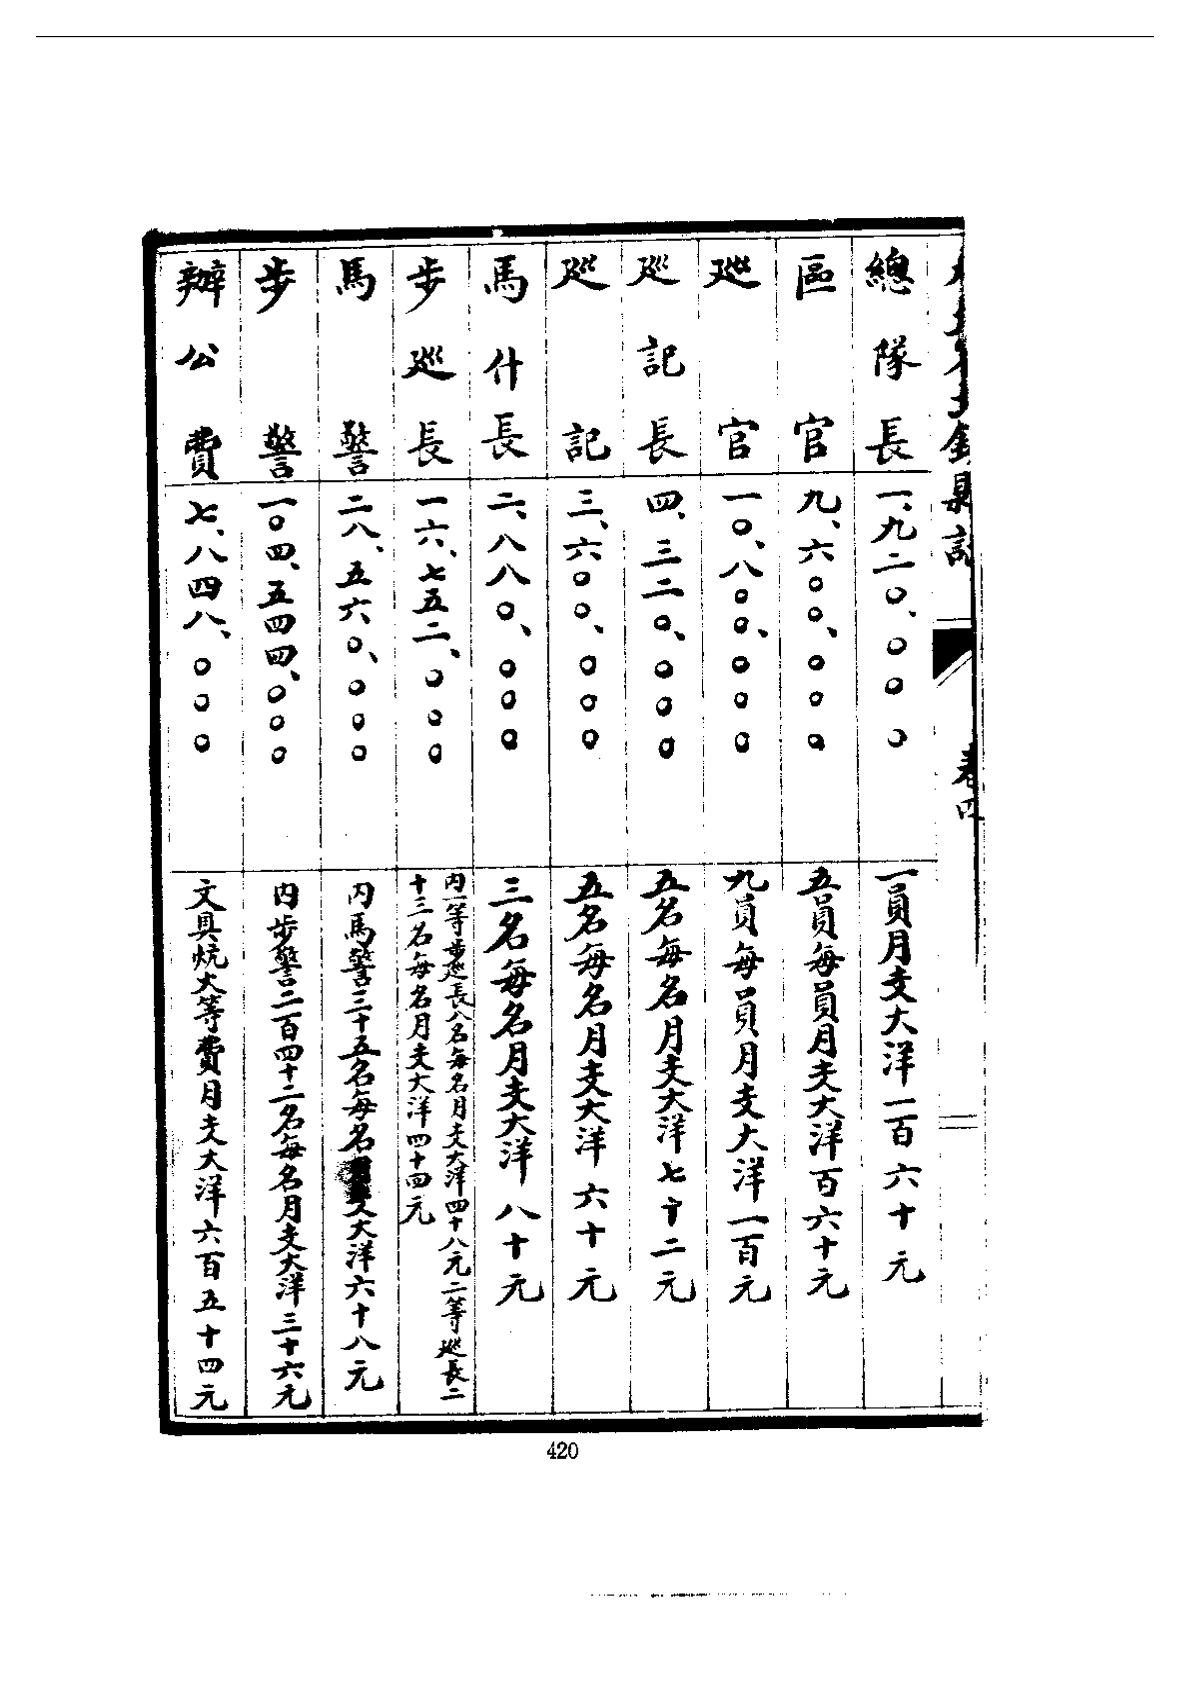 縣誌
卷四
總隊長
一、九二〇、〇〇〇
一員月支大洋一百六十元
區官
九、六〇〇、〇〇〇
五員每員月支大洋百六十元
巡官
一〇、八〇〇、〇〇〇
九員每員月支大洋一百元
巡記長
四、三二〇、〇〇〇
五名每名月支大洋七十二元
巡記
三、六〇〇、〇〇〇
五名每名月支大洋六十元
馬什長
二、八八〇、〇〇〇
三名每名月支大洋八十元
步巡長
一六、七五二、〇〇〇
內一等步巡長八名每名月支大洋四十八元二等巡長二
十三名每名月支大洋四十四元
馬警
二八、五六〇、〇〇〇
內馬警三十五名每名月支大洋六十八元
步警
一〇四、五四四、〇〇〇
內步警二百四十二名每名月支大洋三十六元
辦公費
七、八四八、〇〇〇
文具炕火等費月支大洋六百五十四元
420